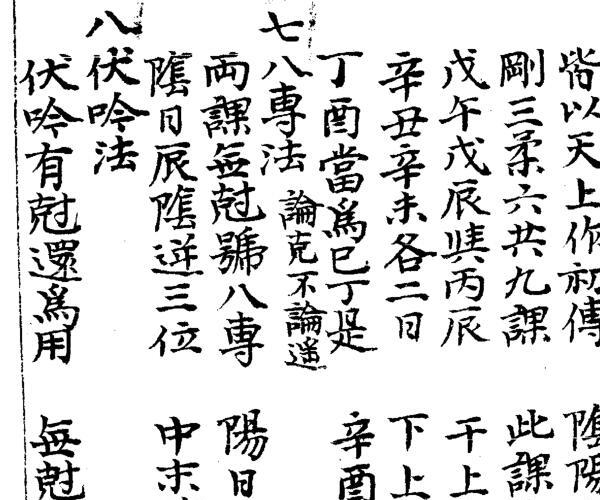 皆以天上作初傳 陰陽
剛三柔六共九課 此課
戊午戊辰與丙辰 干上
辛丑辛未各二日 下上
丁酉當爲已丁是 辛酉
七八專法 論克不論遥
兩課無尅號八專 陽日
陰日辰陰逆三位 中末
八伏吟法
伏吟有尅還爲用 無尅